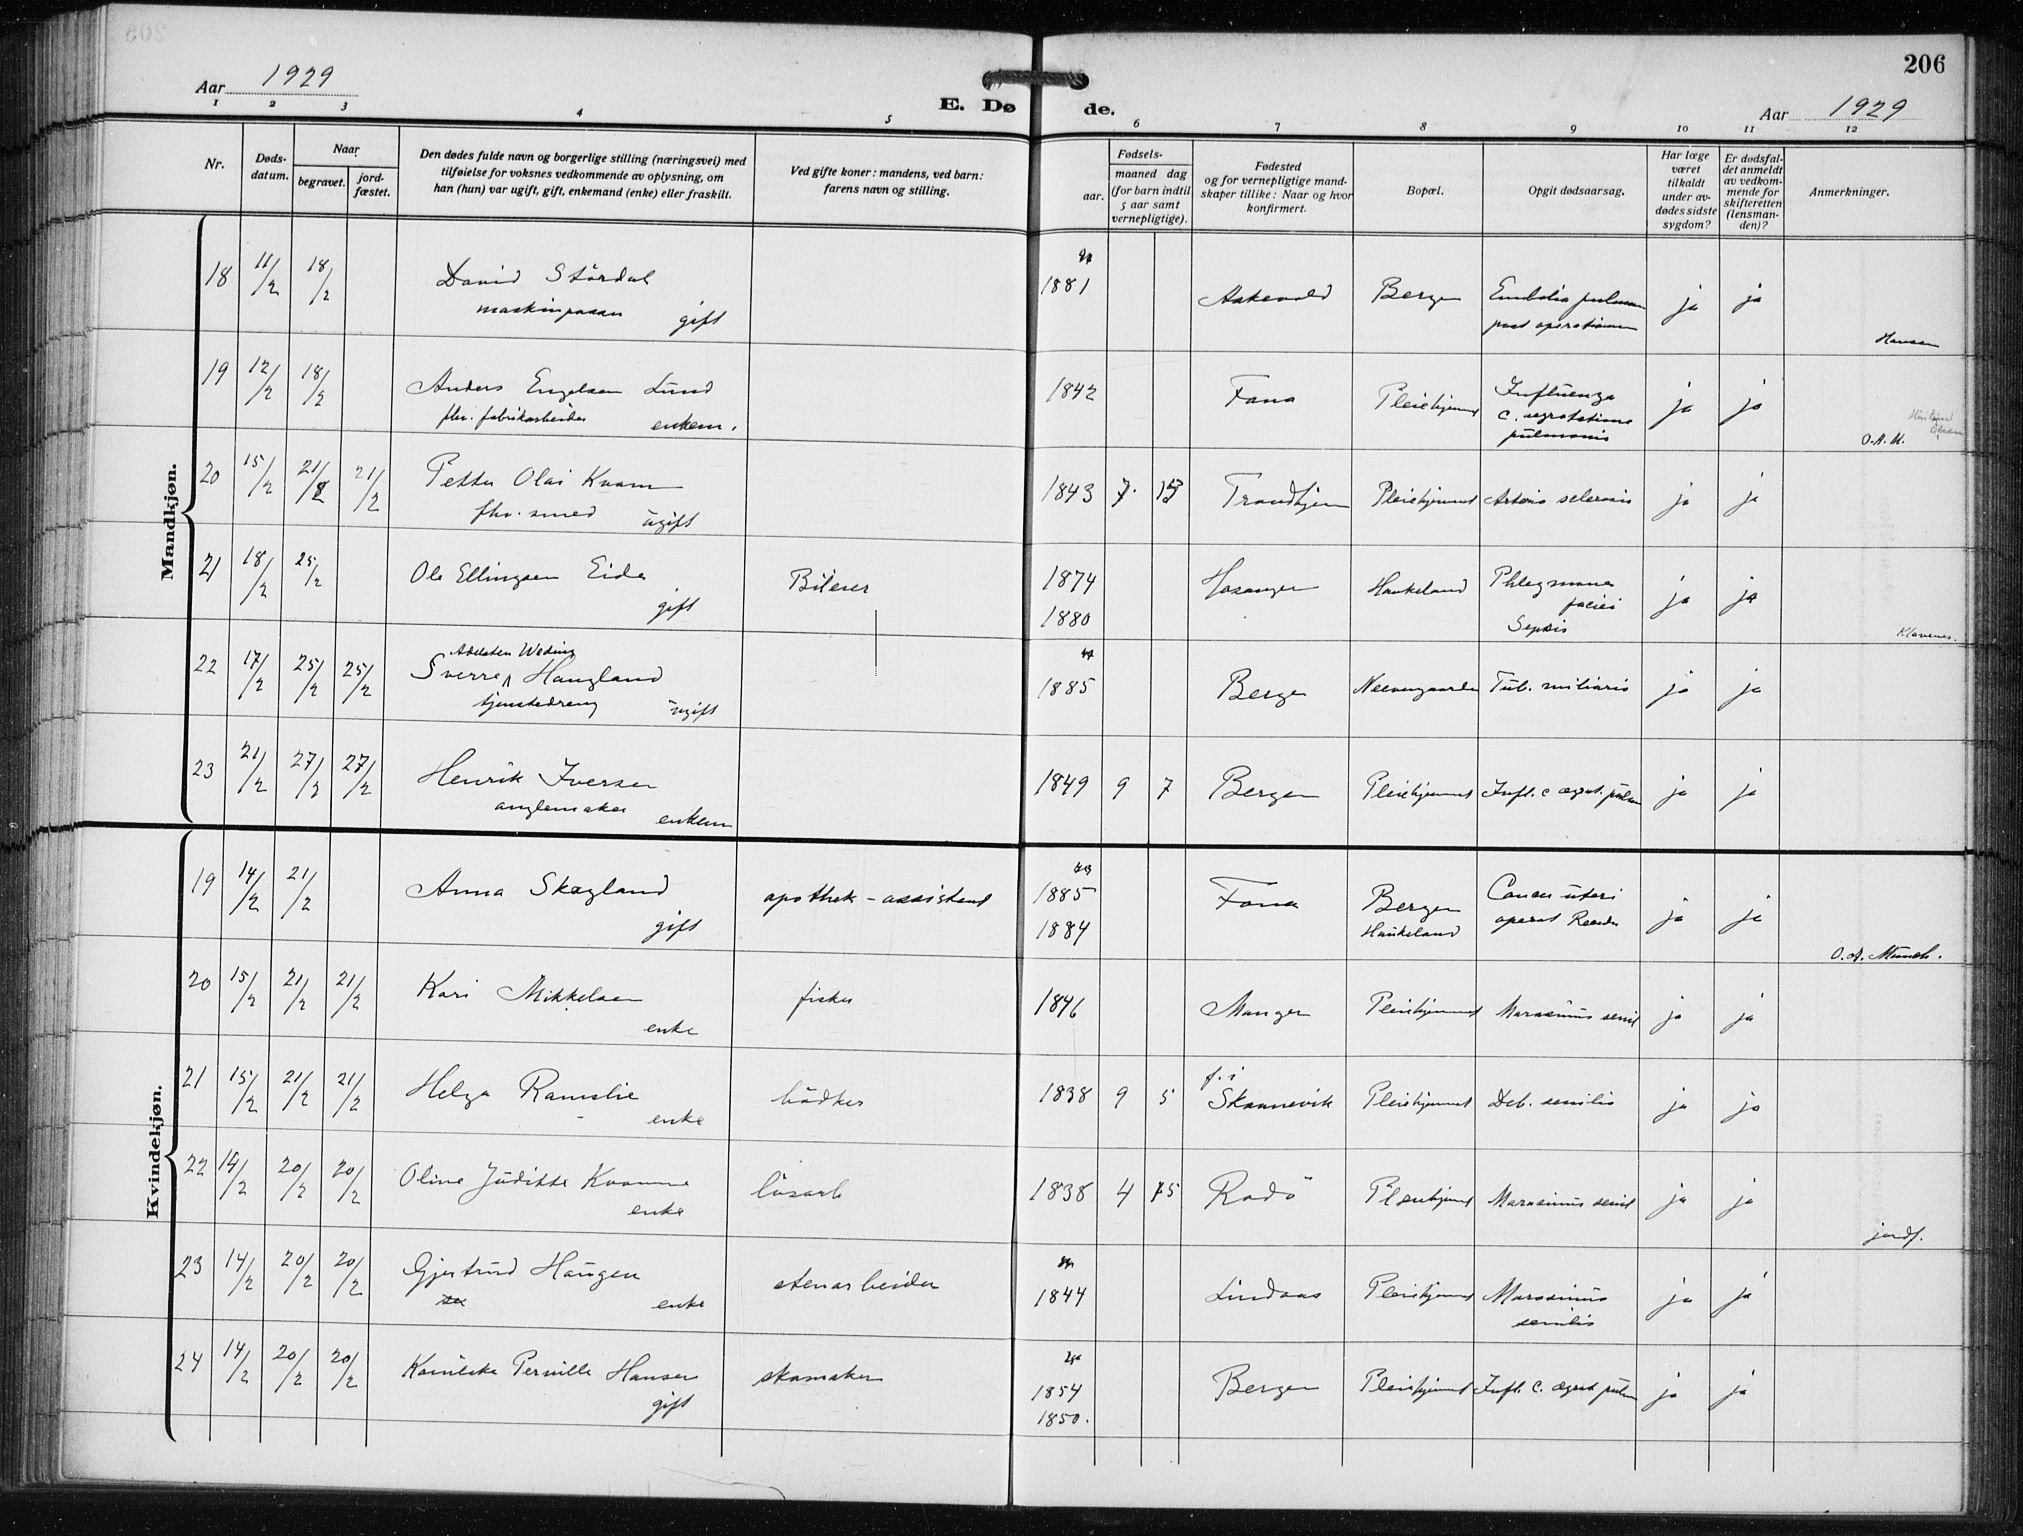 206
Aar 1929
E. Dø de.
Aar 1929
1 2 3 4 5 6 7 8 9 10 11 12
Nr.
Døds-
datum.
Naar
begravet.
jord-
fæstet.
Den dødes fulde navn og borgerlige stilling (næringsvei) med
tilføielse for voksnes vedkommende av oplysning, om
han (hun) var ugift, gift, enkemand (enke) eller fraskilt.
Ved gifte koner: mandens, ved barn:
farens navn og stilling.
Fødsels-
aar.
maaned dag
(for barn indtil
5 aar samt
vernepligtige).
Fødested
og for vernepligtige mand-
skaper tillike: Naar og hvor
konfirmert.
Bopæl.
Opgit dødsaarsag.
Har læge
været
tilkaldt
under av-
dødes sidste
sygdom?
Er dødsfal-
det anmeldt
av vedkom-
mende for
skifteretten
(lensman-
den)?
Anmerkninger.
Mandkjøn.
18 11/2 18/2 David Stördal 1881 Askevold Bergen Embolia pulmon ja ja
maskinpasser gift post operationem Hansen
19 12/2 18/2 Anders Engelsen Lund 1842 Fana Pleiehjemmet Influenza ja ja
fhv. fabrikarbeider enkem. c. pulmonis
20 15/2 21/2 21/2 Petter Olai Kvam 1843 7. Trondhjem Pleiehjemmet Arterio sclerosis ja ja
fhv. smed ugift
21 18/2 25/2 Ole Ellingsen Eide Bileier 1874 Hosanger Haukeland Phlegmone ja ja
gift 1880 faciei
Sepsis Klavenes.
22 17/2 25/2 25/2 Sverre Haugland 1885 Bergen Neevengaarden Tub. miliaris ja ja
tjenstedreng ugift
23 21/2 27/2 27/2 Henrik Iversen 1849 9 7 Bergen Pleiehjemmet Infl. c ægrot. pulm ja ja
anglemaker enkem
Kvindekjøn.
19 14/2 21/2 Anna Skogland apothek-assistent 1885 Fana Bergen Cancer uteri ja ja
gift 1884 Haukeland operat
O. A. Munch.
20 15/2 21/2 21/2 Kari Mikkelsen fisker 1846 Manger Pleiehjemmet Marasmus senil ja ja
enke
21 15/2 21/2 21/2 Helga Ramslie bödker 1838 9 5 f. i Skaanevik Pleiehjemmet Deb. senilis ja ja
enke
22 14/2 20/2 20/2 Oline Juditte Kvamme lösarb 1838 4 Radö Pleiehjemmet Marasmus senil ja ja
enke jordf.
23 14/2 20/2 20/2 Gjertrud Haugen stenarbeider 1844 Lindaas Pleiehjemmet Marasmus ja ja
enke senilis
24 14/2 20/2 20/2 Pernille Hansen skomaker 1854 Bergen Pleiehjemmet Infl. c. ægrot pulm ja ja
gift 1850.